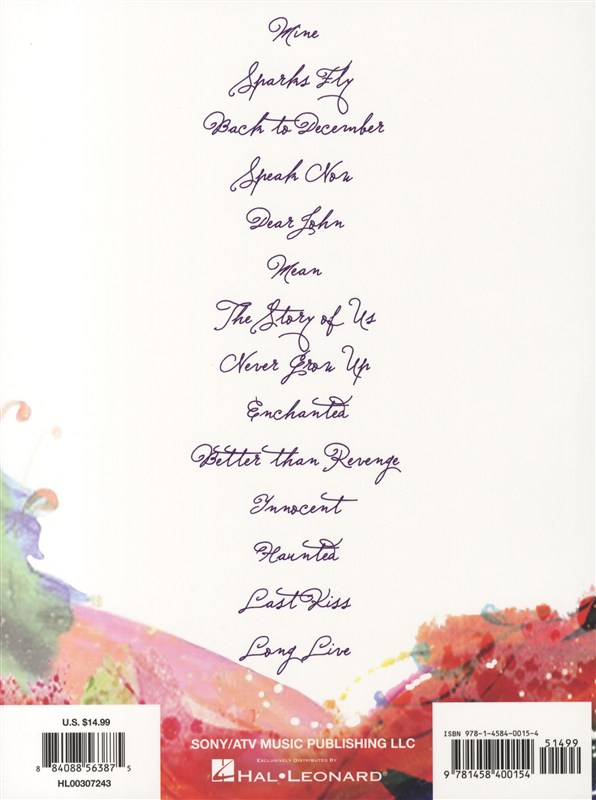 Mine
Sparks Fly
Back to December
Speak Now
Dear John
Mean
The Story of Us
Never Grow Up
Enchanted
Better than Revenge
Innocent
Haunted
Last Kiss
Long Live
U.S. $14.99
8 84088 56387 5
HL00307243
SONY/ATV MUSIC PUBLISHING LLC
EXCLUSIVELY DISTRIBUTED BY
HAL•LEONARD®
ISBN 978-1-4584-0015-4
51499
9 781458 400154